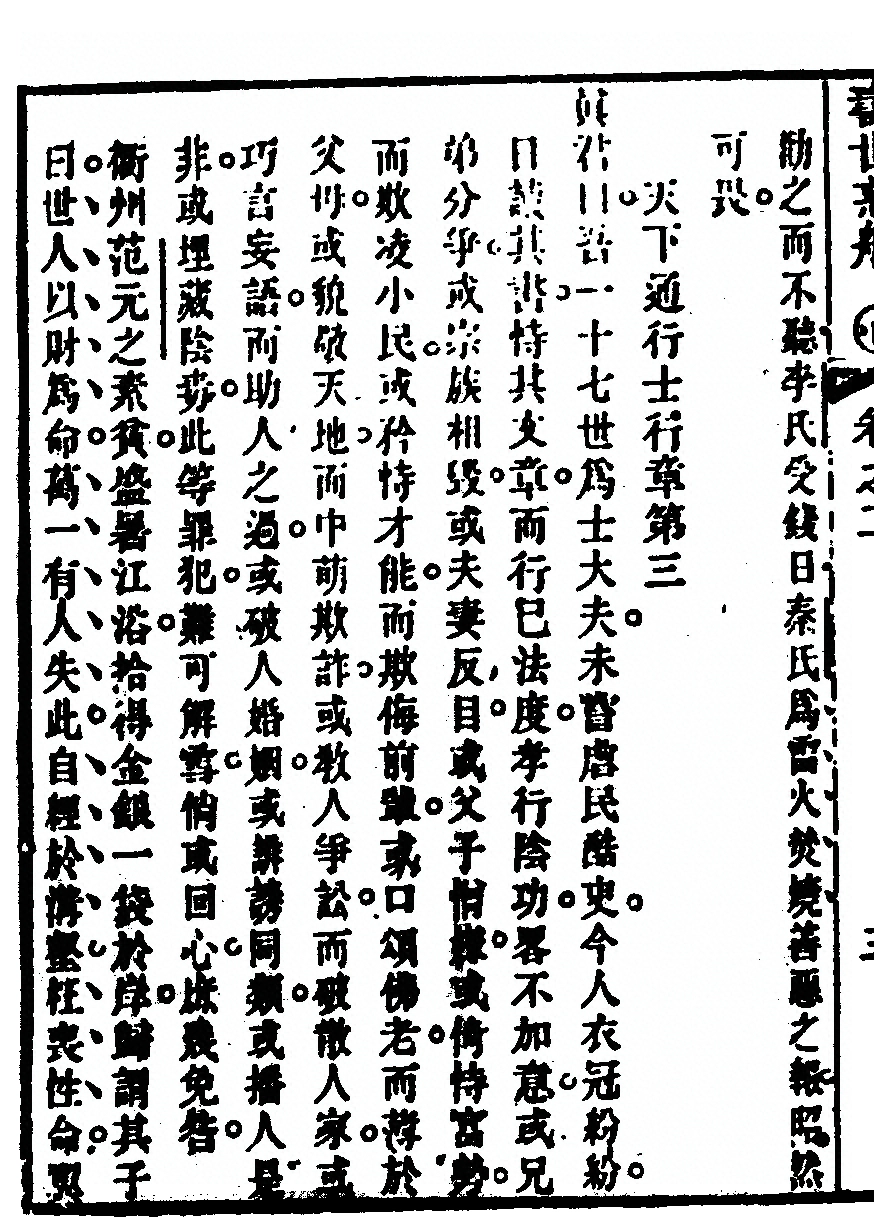 勸之而不聽李氏受錢日秦氏爲雷火焚燒善惡之報昭然
可畏
天下通行士行章第三
眞君曰吾一十七世爲士大夫未嘗虐民酷吏今人衣冠紛紛
日讀其書恃其文章而行已法度孝行陰功畧不加意或兄
弟分爭或宗族相毀或夫妻反目或父子相或倚恃富勢
而欺凌小民或矜恃才能而欺侮前輩或口頌佛老而薄於
父母或貌敬天地而中萌欺詐或教人爭訟而破散人家或
巧言妄語而助人之過或破人婚姻或誹謗同類或播人是
非或埋藏陰毒此等罪犯難可解雪倘或回心庶幾免咎
衢州范元之素貧盛暑江浴拾得金銀一袋於岸歸謂其子
曰世人以財爲命萬一有人失此自經於溝壑枉喪性命與